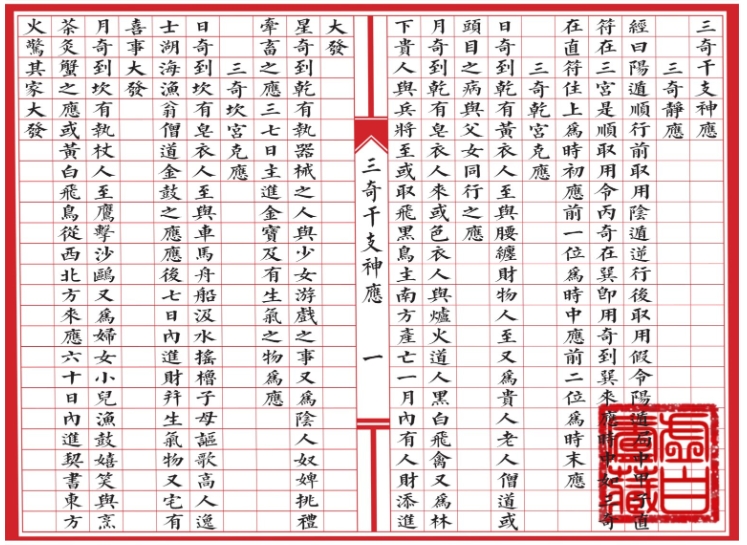 三奇干支神應
三奇靜應
經曰陽遁順行前取用陰遁逆行後取用假令陽遁局中甲子直
符在三宮是順取用令丙奇在巽卽用奇到巽來應時中如三奇
在直符住上爲時初應前一位爲時中應前二位爲時末應
三奇乾宮克應
日奇到乾有黃衣人至與腰纏財物人至又爲貴人老人僧道或
頭目之病與父女同行之應
月奇到乾有皂衣人來或色衣人與爐火道人黑白飛禽又爲林
下貴人與兵將至或取飛黑鳥主南方產亡一月內有人財添進
三奇干支神應 一
大發
星奇到乾有執器械之人與少女游戲之事又爲陰人奴婢挑禮
牽畜之應三七日主進金寶及有生氣之物爲應
三奇坎宮克應
日奇到坎有皂衣人至與車馬舟船汲水搖櫓子母謳歌高人逸
士湖海漁翁僧道金鼓之應應後七日內進財并生氣物又宅有
喜事大發
月奇到坎有執杖人至鷹擊沙鷗又爲婦女小兒漁鼓嬉笑與烹
茶炙蟹之應或黃白飛鳥從西北方來應六十日內進契書東方
火驚其家大發
虛白
廬藏